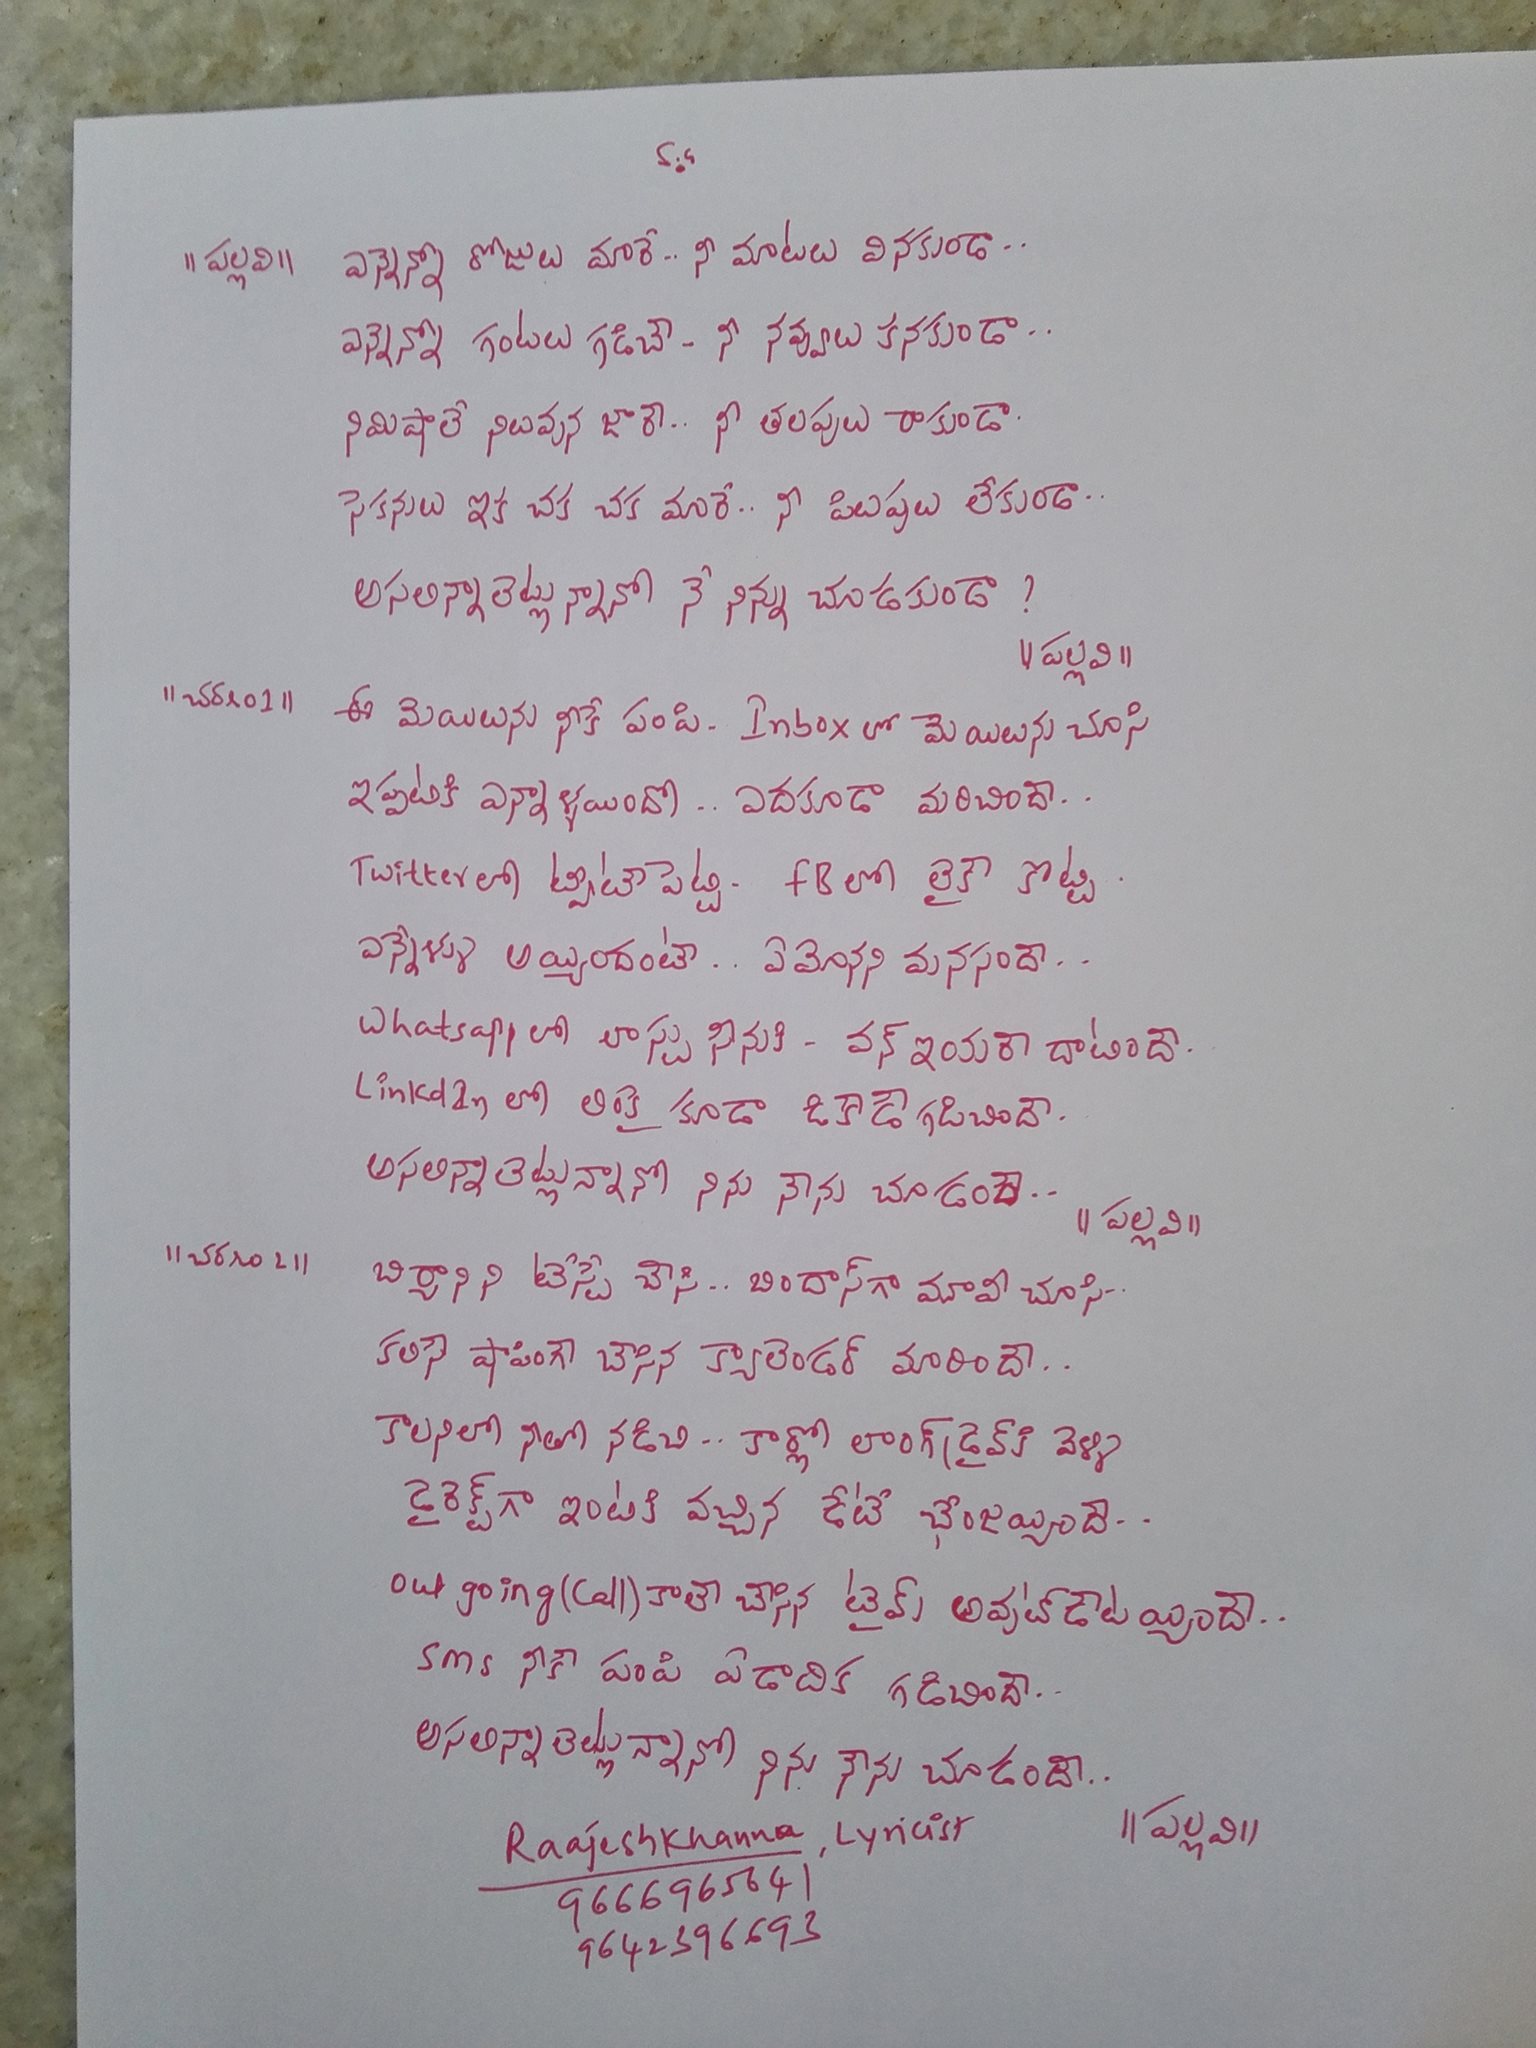 ॥పల్లవి॥ ఎన్నెన్నో రోజులు మారే.. నీ మాటలు వినకుండా..
ఎన్నెన్నో గంటలు గడిచే - నీ నవ్వులు కనకుండా..
నిమిషాలే నిలువున జారే.. నీ తలపులు రాకుండా.
సెకనులు ఇక చక చక మారే.. నీ పిలుపులు లేకుండా..
అసలిన్నాలెట్లున్నానో నే నిన్ను చూడకుండా ?
॥పల్లవి॥
॥చరణం1॥ ఈ మెయిలును నీకే పంపి - Inbox లో మెయిలును చూసి
ఇప్పటికి ఎన్నాళ్ళయిందో .. ఎదకూడా మరిచిందే..
Twitterలో ట్వీటే పెట్టి - fB లో లైకే కొట్టి .
ఎన్నేళ్ళు అయ్యిందంటే .. ఏమోనని మనసందే..
Whatsapp లో లాస్టు సీనుకి - వన్ ఇయరే దాటిందే.
Linkd In లో లింకై కూడా డికేడే గడిచిందే.
అసలిన్నాలెట్లున్నానో నిను నేను చూడందే..
॥పల్లవి॥
॥చరణం 2॥ బిర్యానిని టేస్టే చేసి.. బిందాస్‌గా మూవీ చూసి..
కలిసే షాపింగే చేసిన క్యాలెండర్ మారిందే..
కాలనిలో నీతో నడిచి.. కార్లో లాంగ్‌డ్రైవ్‌కి వెళ్ళి
డైరెక్ట్‌గా ఇంటికి వచ్చిన డేటే ఛేంజయ్యిందే..
Out going (Call) కాలే చేసిన టైమే అవుట్‌డేటయ్యిందే..
Sms నీకే పంపి ఏడాదిక గడిచిందే..
అసలిన్నాలెట్లున్నానో నిను నేను చూడందే..
॥పల్లవి॥
RaajeshKhanna, Lyricist
9666965641
9642396693